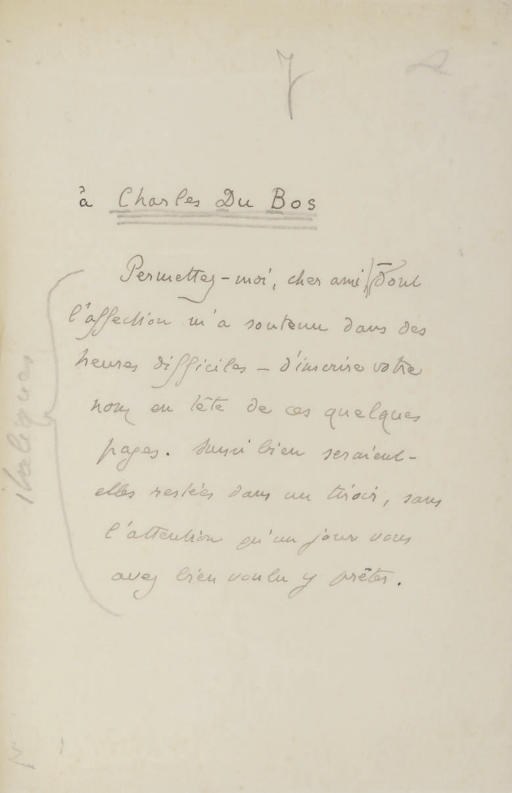 7
à Charles Du Bos
Permettez-moi, cher ami, dont
l'affection m'a soutenu dans des
heures difficiles – d'inscrire votre
nom en tête de ces quelques
pages. Aussi bien seraient-
elles restées dans un tiroir, sans
l'attention qu'un jour vous
avez bien voulu y prêter.
italiques